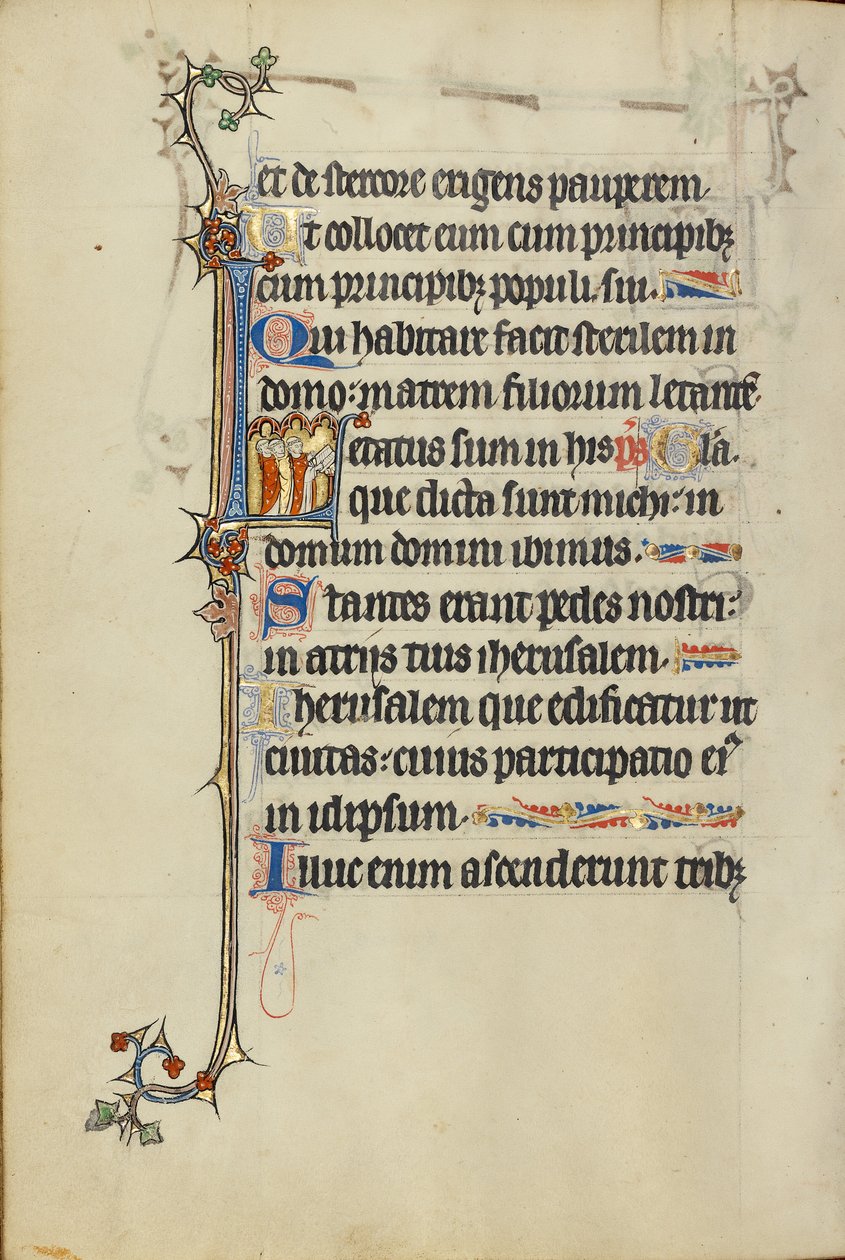 et de stercore erigens pauperem
Ut collocet eum cum principibꝫ
cum principibꝫ populi sui.
Qui habitare facit sterilem in
domo: matrem filiorum letantē.
Letatus sum in his p̄s Glā.
que dicta sunt michi: in
domum domini ibimus.
Stantes erant pedes nostri:
in atriis tuis iherusalem.
Iherusalem que edificatur ut
ciuitas: cuius participatio eiꝰ
in idipsum.
Illuc enim ascenderunt tribꝫ